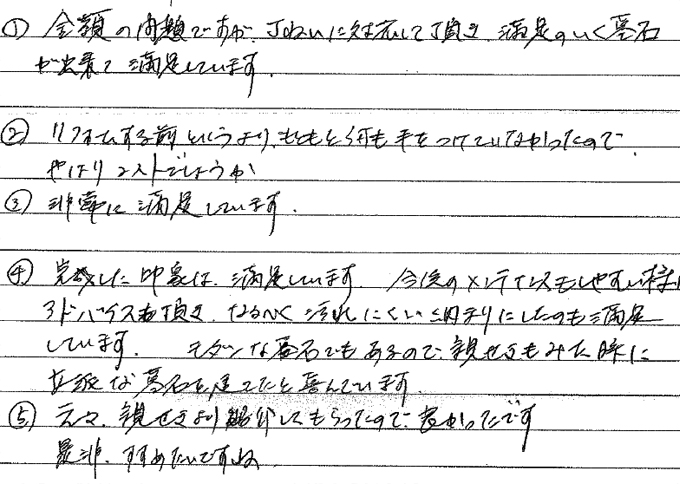 ① 金額の問題ですが、丁ねいに対応して頂き、満足のいく墓石
が出来て満足しています。
② リフォームする前というより、もともと何も手をつけていなかったので、
やはりコストでしょうか
③ 非常に満足しています。
④ 完成した印象は、満足しています 今後のメンテインスもしやすい様に
アドバイスも頂き、なるべく汚れにくい納まりにしたのも満足
しています。 モダンな墓石でもあるので、親せきもみた時に
立派な墓石を建てたと喜んでいます。
⑤ 元々、親せきより紹介してもらったので、良かったです
是非、すすめたいですね